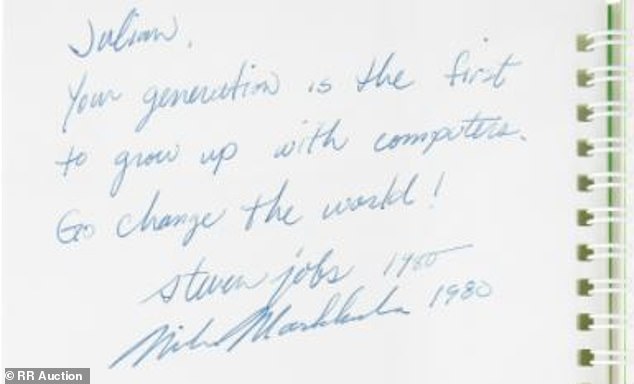 Julian,
Your generation is the first
to grow up with computers.
Go change the world!
steven jobs 1980
Mike Markkula 1980
© RR Auction